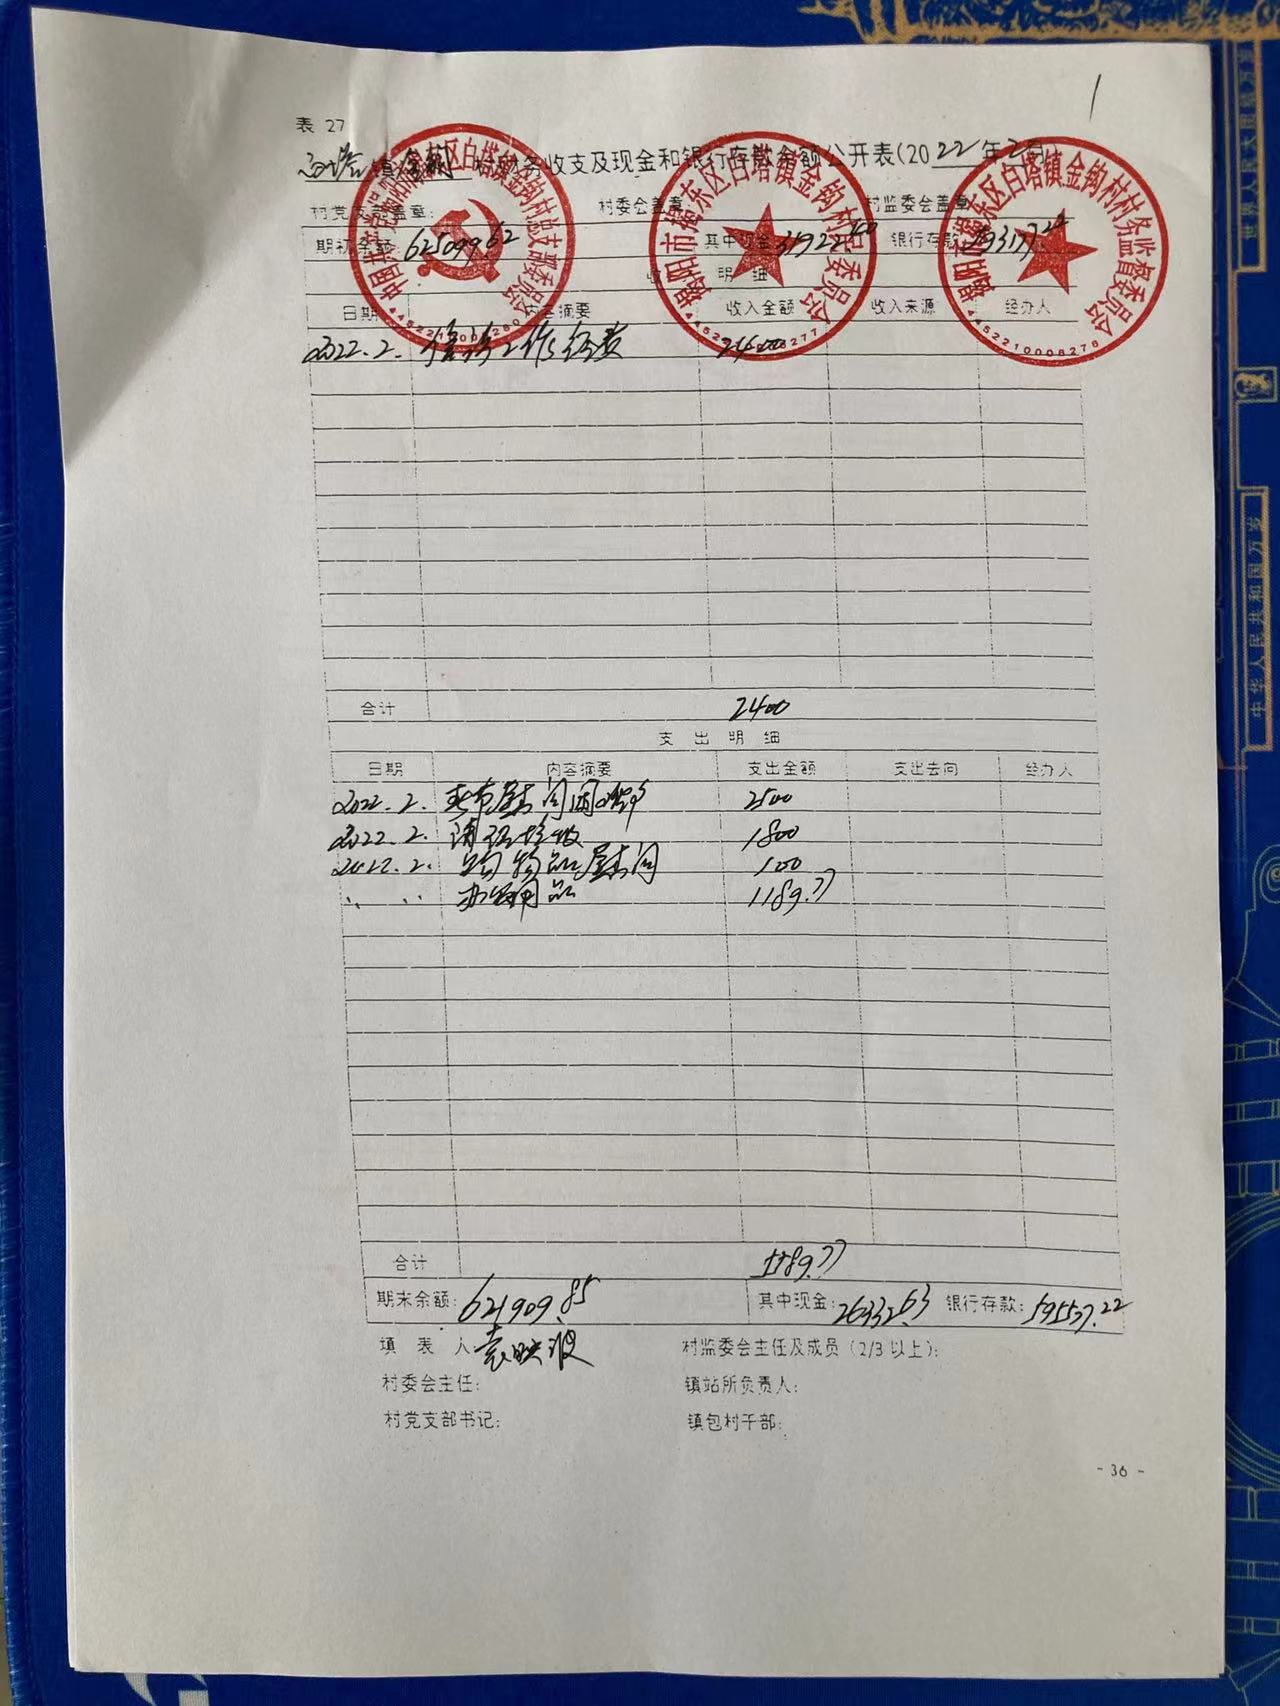 1
表 27
白塔镇金钩村财务收支及现金和银行存款余额公开表(2022年2月)
村党支部盖章: 村委会盖章 村监委会盖章
期初余额: 625099.62 其中现金: 31922.40 银行存款: 593177.22
收 明 细
日期 内容摘要 收入金额 收入来源 经办人
2022.2. 经费 2400
合计 2400
支 出 明 细
日期 内容摘要 支出金额 支出去向 经办人
2022.2. 春节慰问困难户 2500
2022.2. 1800
2022.2. 物品慰问 100
〃 〃 办公用品 1189.77
合计 5589.77
期末余额: 621909.85 其中现金: 26332.63 银行存款: 595577.22
填 表 人 袁映波 村监委会主任及成员(2/3以上):
村委会主任: 镇站所负责人:
村党支部书记: 镇包村干部:
- 36 -
揭阳市揭东区白塔镇金钩村民委员会
揭阳市揭东区白塔镇金钩村村务监督委员会
4452210008278
世界人民大团结万岁
中华人民共和国万岁